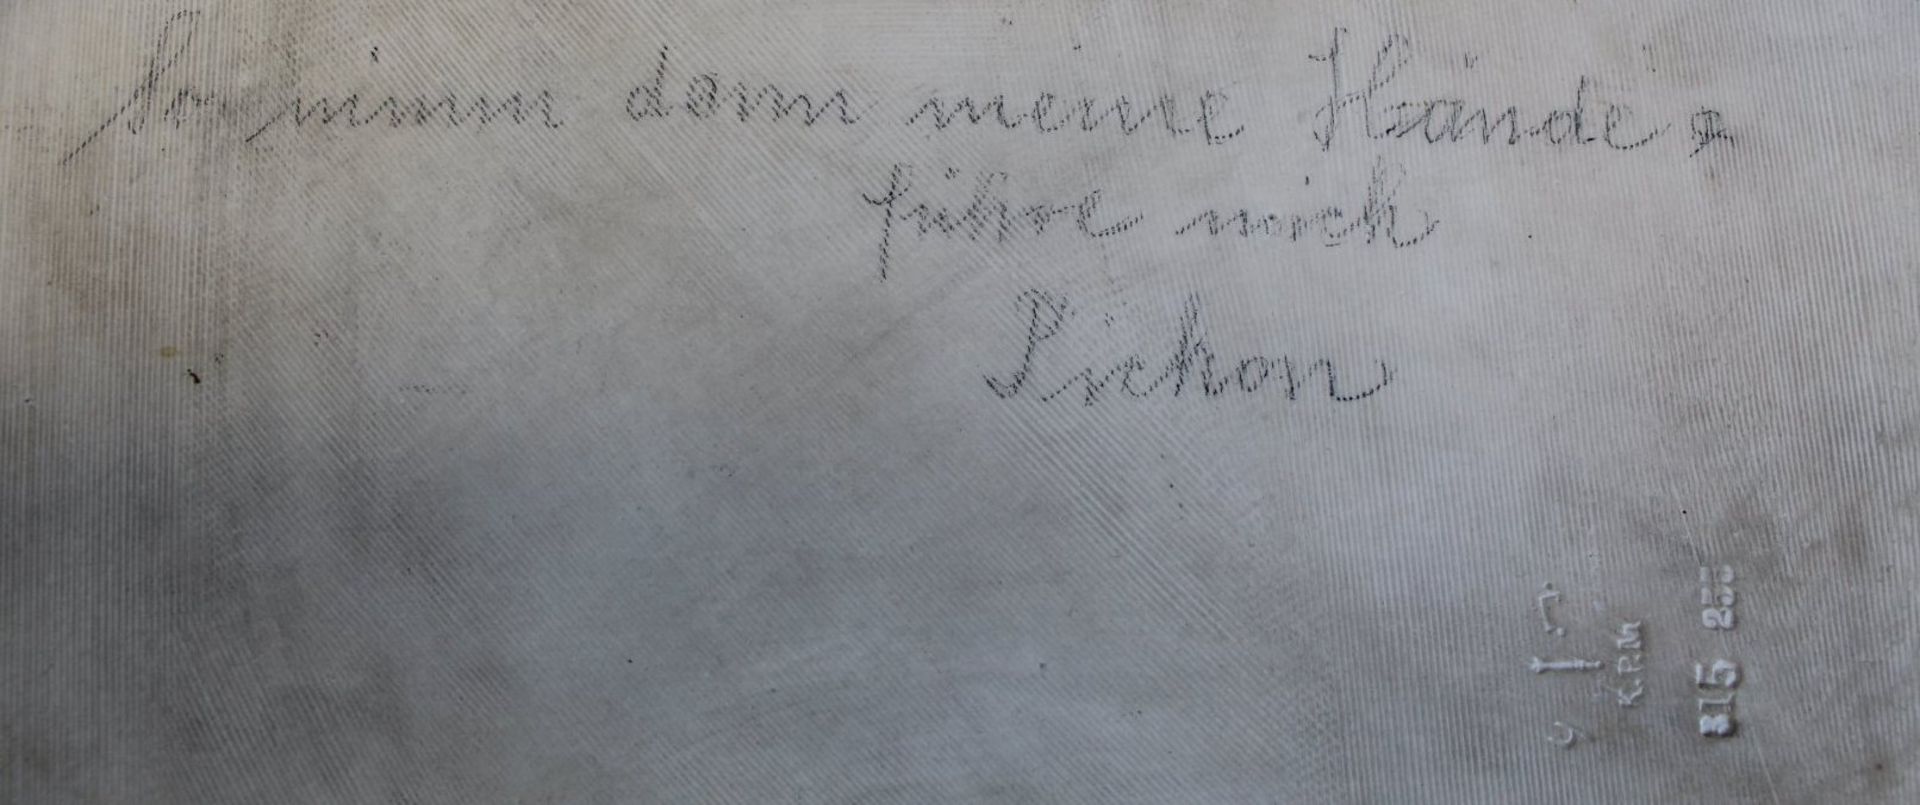 So nimm dann meine Hände u
führe mich
Pichon
K.P.M
315 255